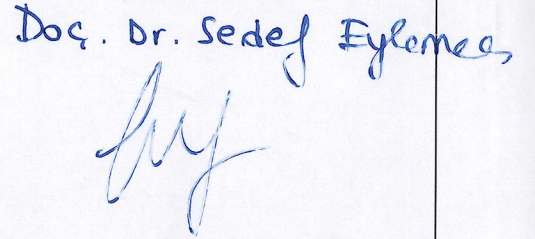 Doç. Dr. Sedef Eylemer